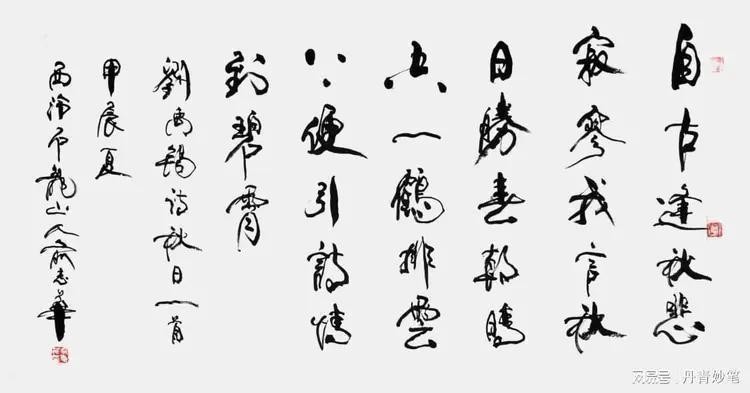 自古逢秋悲
寂寥我言秋
日勝春朝晴
空一鶴排雲
上便引詩情
到碧霄
劉禹錫詩秋日一首
甲辰夏
西泠龍山人俞志華
网易号 丹青妙笔